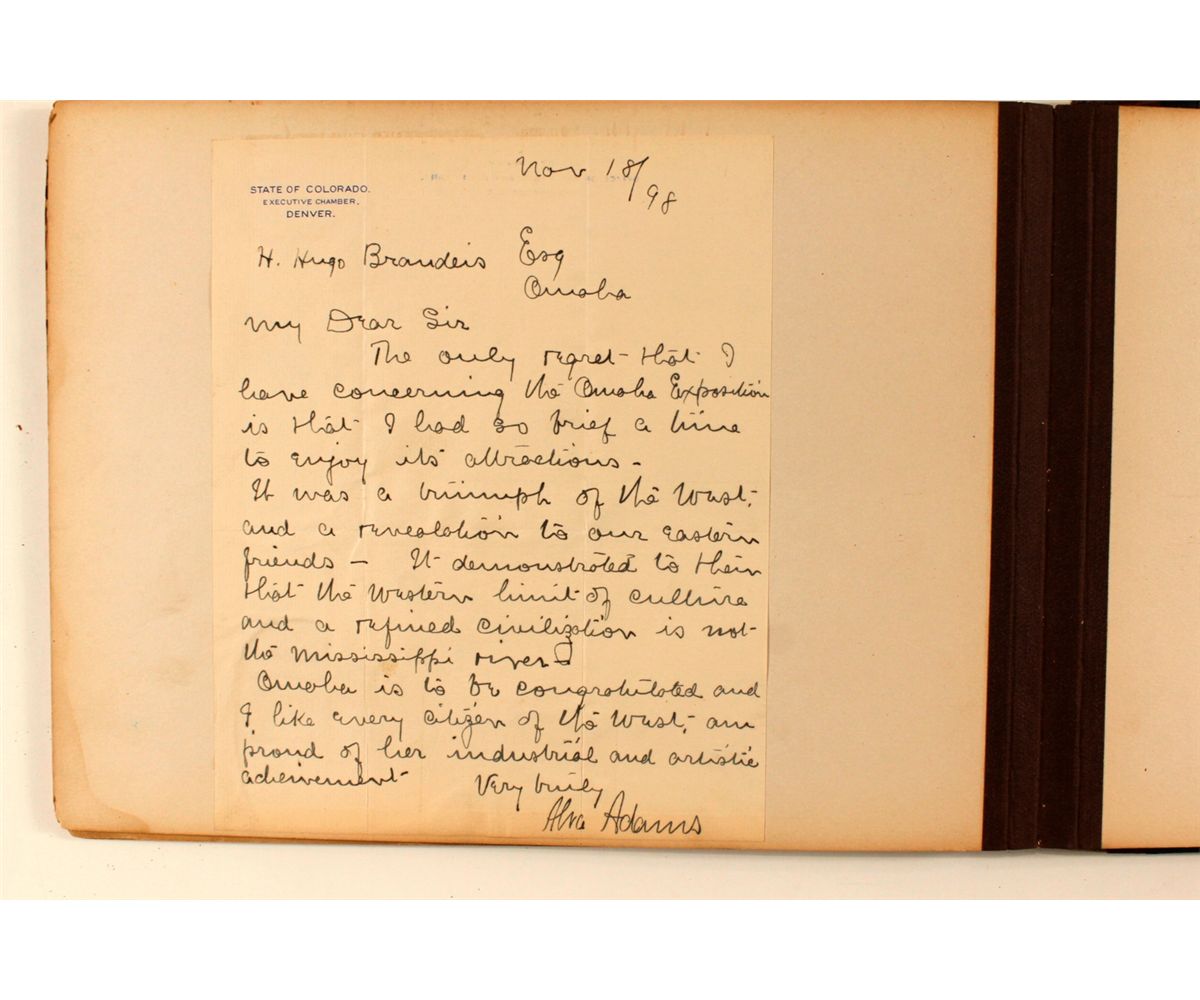 Nov 18/98
STATE OF COLORADO.
EXECUTIVE CHAMBER,
DENVER.
H. Hugo Brandeis Esq
Omaha
My Dear Sir
The only regret that I
have concerning the Omaha Exposition
is that I had so brief a time
to enjoy its attractions -
It was a triumph of the West,
and a revealation to our eastern
friends — It demonstrated to them
that the western limit of culture
and a refined civilization is not
the Mississippi river
Omaha is to be congratulated and
I like every citizen of the West, am
proud of her industrial and artistic
acheivement
Very truly
Alva Adams